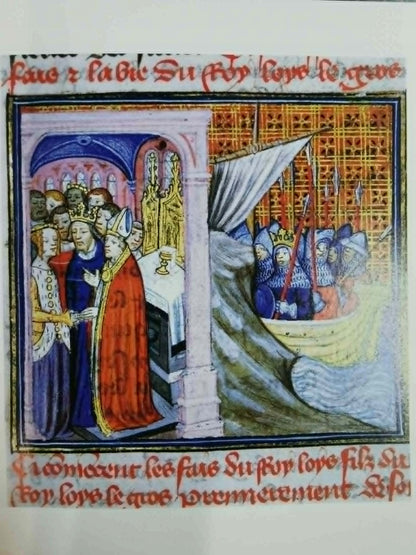 fais & la vie du Roy loys le gros
Ci cõmencent les fais du Roy loys filz du
Roy loys le gros premierement de so